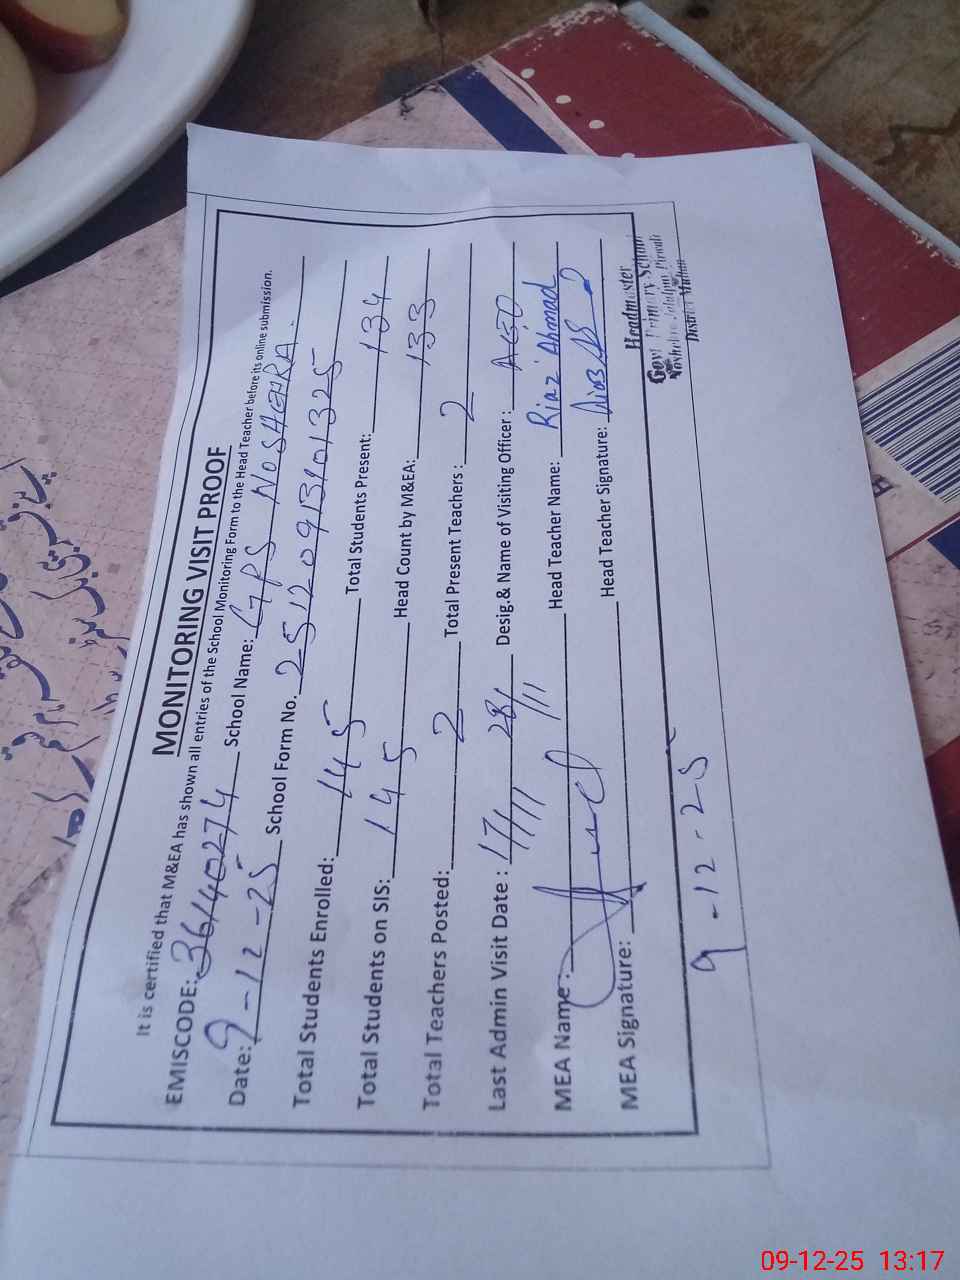 MONITORING VISIT PROOF
It is certified that M&EA has shown all entries of the School Monitoring Form to the Head Teacher before its online submission.
EMISCODE: 36140274 School Name: GPS NOSHEHRA.
Date: 9-12-25 School Form No. 25120913401325
Total Students Enrolled: 145 Total Students Present: 134
Total Students on SIS: 145 Head Count by M&EA: 133
Total Teachers Posted: 2 Total Present Teachers: 2
Last Admin Visit Date: 17/11 28/11 Desig.& Name of Visiting Officer: AEO
MEA Name: Head Teacher Name: Riaz Ahmad
MEA Signature: Head Teacher Signature:
Headmaster
Govt Primary School
Noshehra Jalalpur Pirwala
District Multan
9-12-25
09-12-25 13:17